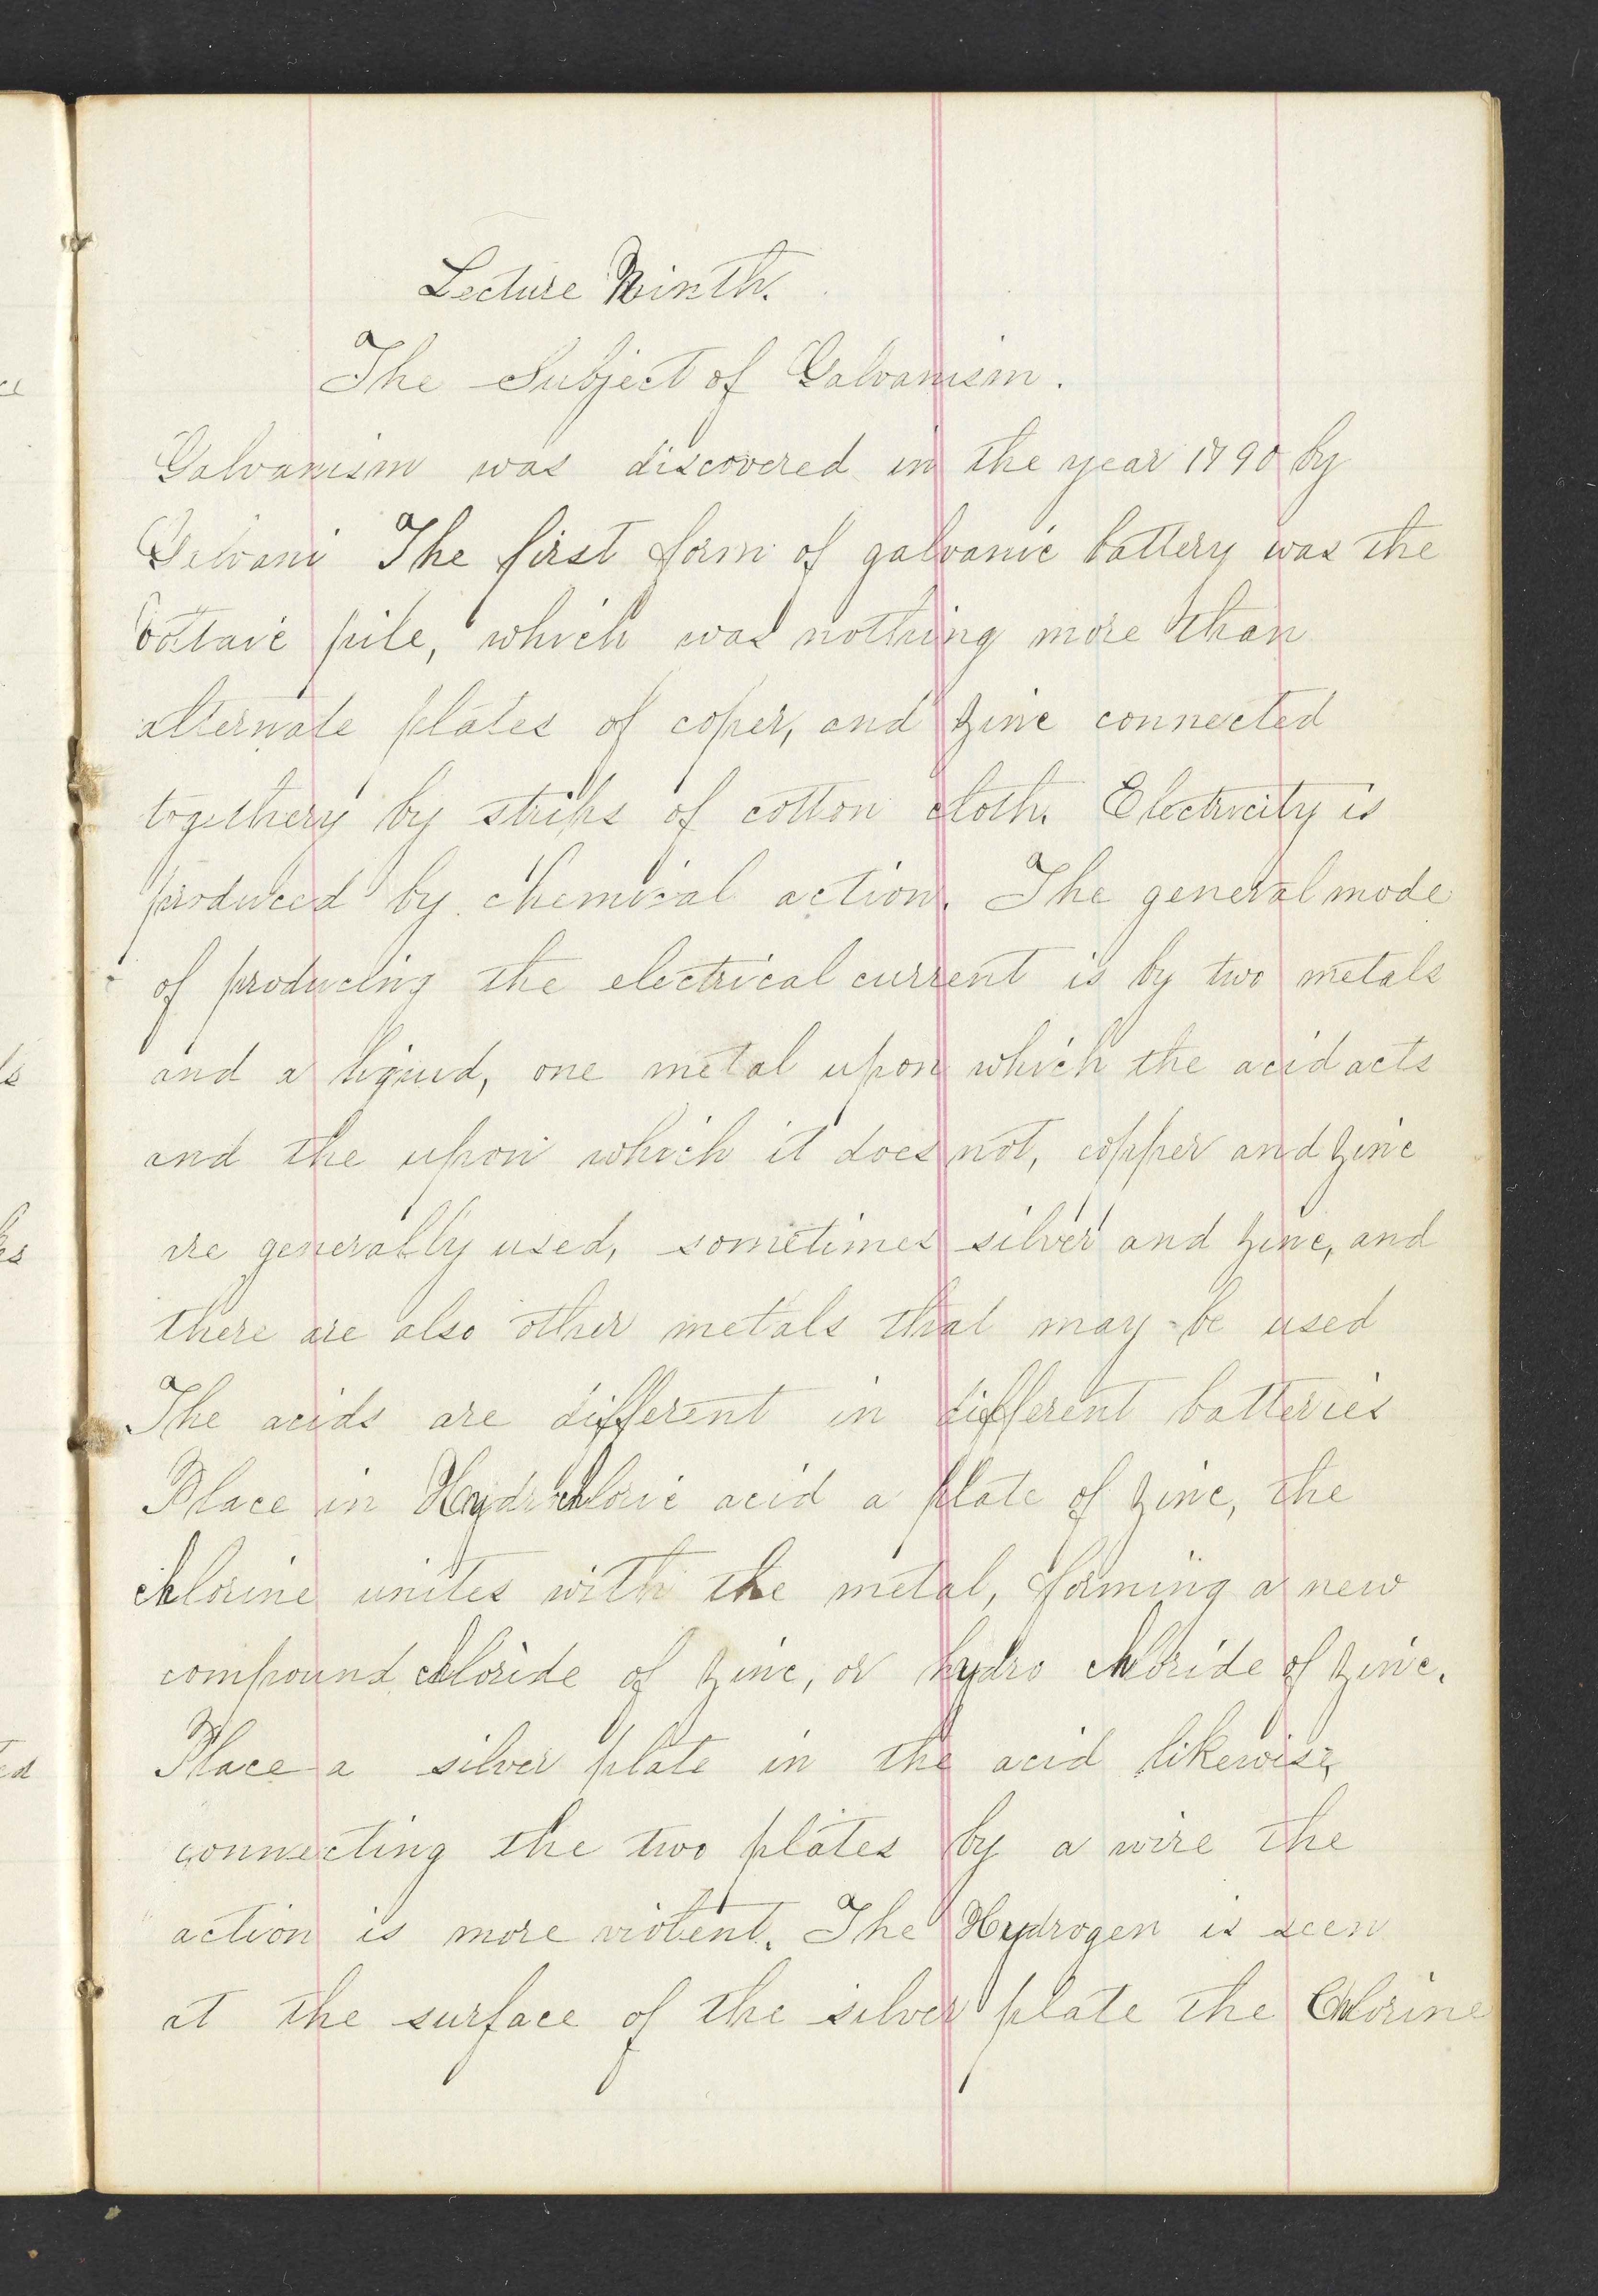 Lecture Ninth.
The Subject of Galvanism.
Galvanism was discovered in the year 1790 by
Gelvani The first form of galvanic battery was the
voltaic pile, which was nothing more than
alternate plates of coper, and zinc connected
togethery by strips of cotton cloth. Electricity is
produced by chemical action. The general mode
of producing the electrical current is by two metals
and a liquid, one metal upon which the acid acts
and the upon which it does not, copper and zinc
are generally used, sometimes silver and zinc, and
there are also other metals that may be used
The acids are different in different batteries
Place in Hydrochloric acid a plate of zinc, the
chlorine unites with the metal, forming a new
compound chloride of zinc, or hydro chloride of zinc.
Place a silver plate in the acid likewise,
connecting the two plates by a wire the
action is more violent. The Hydrogen is seen
at the surface of the silver plate the Chlorine